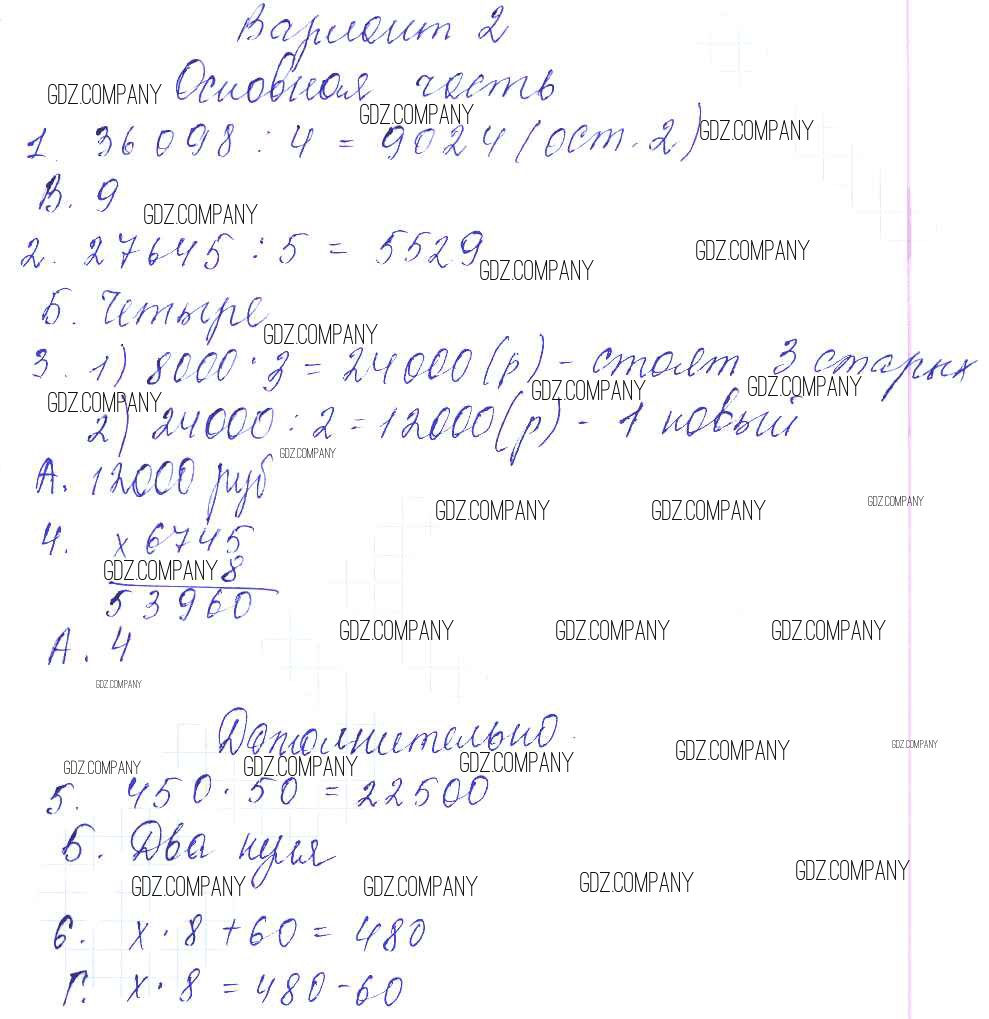 Вариант 2
GDZ.COMPANY Основная часть
GDZ.COMPANY
1. 36098 : 4 = 9024 (ост. 2) GDZ.COMPANY
В. 9 GDZ.COMPANY
2. 27645 : 5 = 5529 GDZ.COMPANY GDZ.COMPANY
Б. Четыре GDZ.COMPANY
3. 1) 8000 · 3 = 24000 (р) - стоят 3 старых
GDZ.COMPANY GDZ.COMPANY GDZ.COMPANY
2) 24000 : 2 = 12000 (р) - 1 новый
GDZ.COMPANY
А. 12000 руб
GDZ.COMPANY GDZ.COMPANY GDZ.COMPANY
4. х 6745
GDZ.COMPANY 8
53960
GDZ.COMPANY GDZ.COMPANY GDZ.COMPANY
А. 4
GDZ.COMPANY
Дополнительно
GDZ.COMPANY GDZ.COMPANY GDZ.COMPANY GDZ.COMPANY GDZ.COMPANY
5. 450 · 50 = 22500
Б. Два нуля
GDZ.COMPANY GDZ.COMPANY GDZ.COMPANY GDZ.COMPANY
6. х · 8 + 60 = 480
Г. х · 8 = 480 - 60